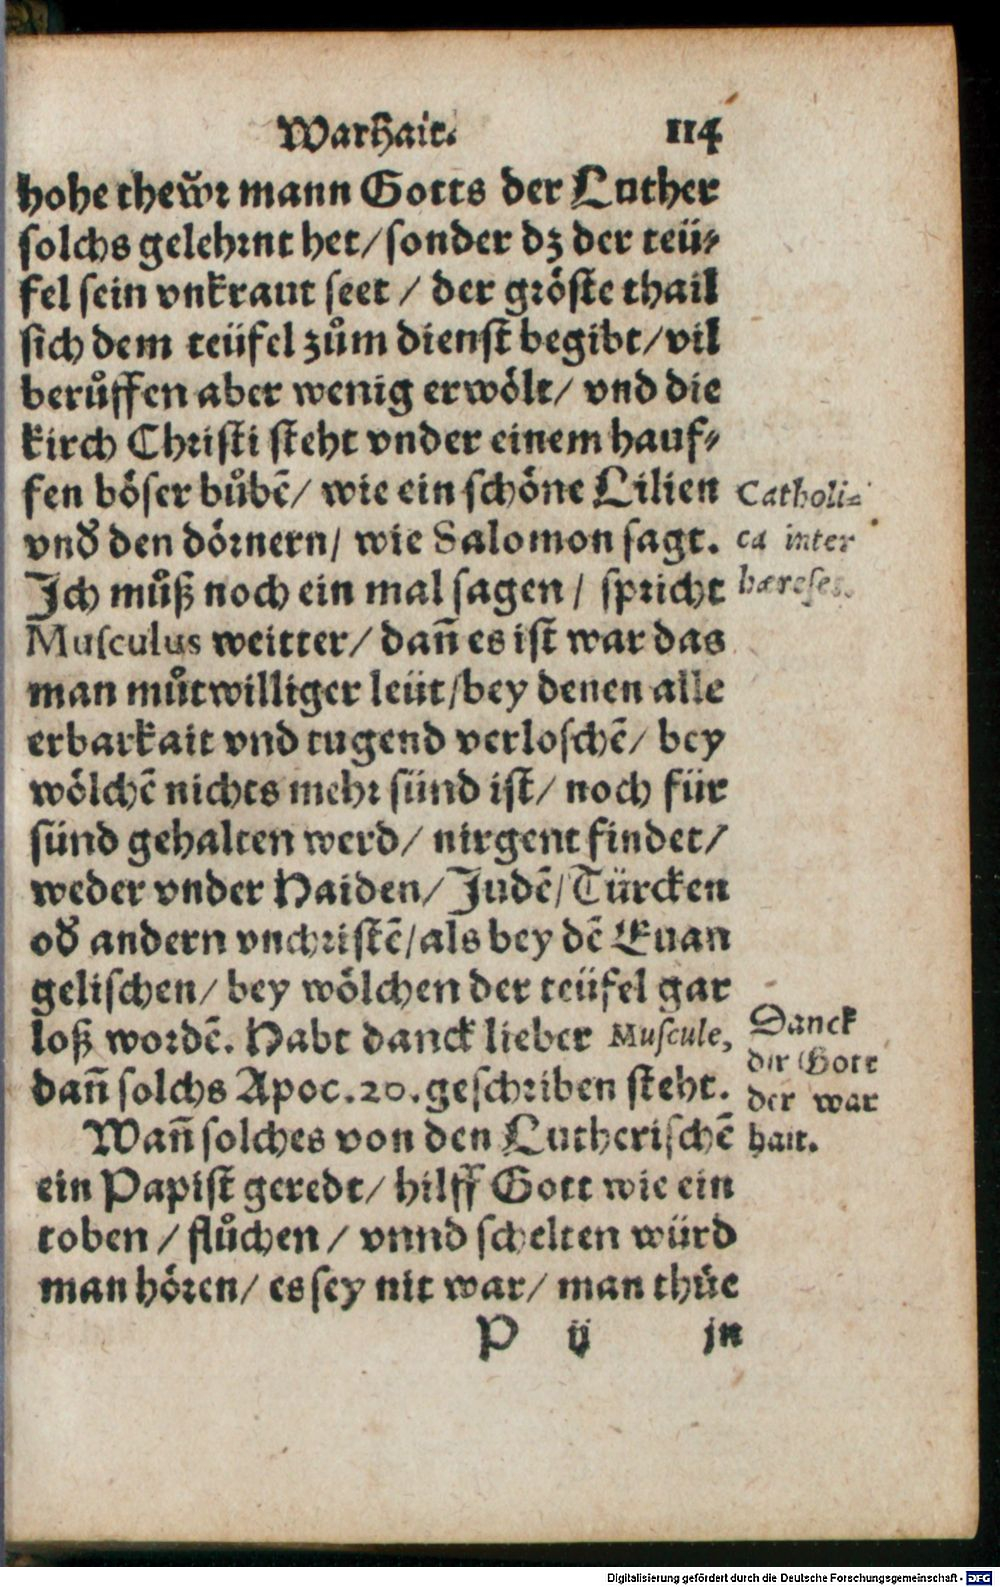 Warhait. 114
hohe thew̃r mann Gotts der Luther
solchs gelehrnt het/ sonder dz der teü⸗
fel sein vnkraut seet / der gröste thail
sich dem teüfel zům dienst begibt/ vil
berůffen aber wenig erwölt/ vnd die
kirch Christi steht vnder einem hauf⸗
fen böser bůbẽ/ wie ein schöne Lilien
vnd̕ den dörnern/ wie Salomon sagt.
Ich můß noch ein mal sagen / spricht
Musculus weitter/ dañ es ist war das
man můtwilliger leüt/ bey denen alle
erbarkait vnd tugend verloschẽ/ bey
wölchẽ nichts mehr sünd ist/ noch für
sünd gehalten werd/ nirgent findet/
weder vnder Haiden/ Judẽ/ Türcken
od̕ andern vnchristẽ/ als bey dẽ Euan
gelischen/ bey wölchen der teüfel gar
loß wordẽ. Habt danck lieber Muscule,
dañ solchs Apoc. 20. geschriben steht.
Wañ solches von den Lutherischẽ
ein Papist geredt/ hilff Gott wie ein
toben / flůchen / vnnd schelten würd
man hören/ es sey nit war/ man thüe
P ij jn
Catholi⸗
ca inter
hæreses.
Danck
dir Gott
der war
hait.
Digitalisierung gefördert durch die Deutsche Forschungsgemeinschaft - DFG